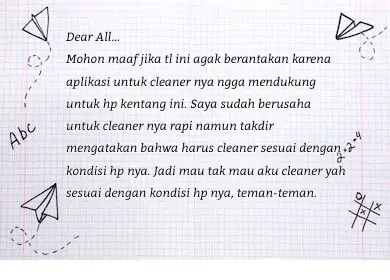 Dear All...
Mohon maaf jika tl ini agak berantakan karena
aplikasi untuk cleaner nya ngga mendukung
untuk hp kentang ini. Saya sudah berusaha
untuk cleaner nya rapi namun takdir
mengatakan bahwa harus cleaner sesuai dengan
kondisi hp nya. Jadi mau tak mau aku cleaner yah
sesuai dengan kondisi hp nya, teman-teman.
Abc
2+2=4
O X
X